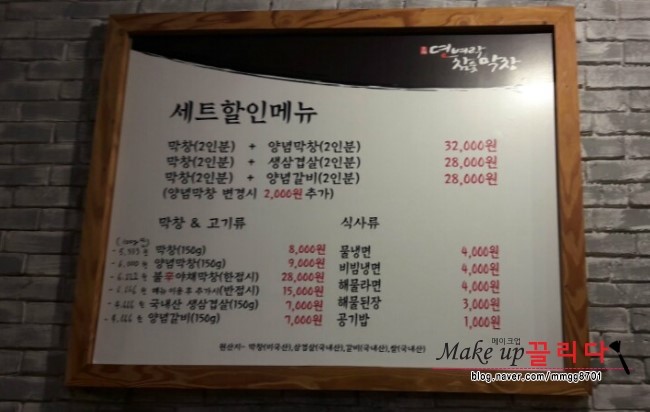 열벼락
참숯 막창
세트할인메뉴
막창(2인분) + 양념막창(2인분) 32,000원
막창(2인분) + 생삼겹살(2인분) 28,000원
막창(2인분) + 양념갈비(2인분) 28,000원
(양념막창 변경시 2,000원 추가)
막창 & 고기류 식사류
막창(150g) 8,000원 물냉면 4,000원
양념막창(150g) 9,000원 비빔냉면 4,000원
불쭈야채막창(한접시) 28,000원 해물라면 4,000원
메뉴 이용 후 추가시(반접시) 15,000원 해물된장 3,000원
국내산 생삼겹살(150g) 7,000원 공기밥 1,000원
양념갈비(150g) 7,000원
원산지- 막창(미국산),삼겹살(국내산),갈비(국내산),쌀(국내산)
메이크업
Make up 끌리다
blog.naver.com/mmgg8701